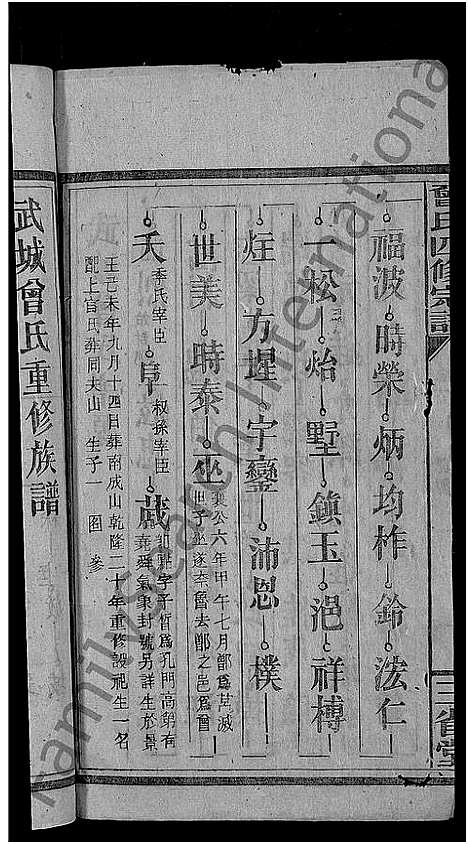 曾氏四修宗譜
三省堂
福波 時榮 炳 均柞 鈴 法仁
一松 炲 墅 鎮玉 浥 祥榑
炷 方墀 宇鑾 沛恩 樸
世美 時泰 巫 襄公六年甲午七月鄫爲莒滅
世子巫遂奔魯去鄫之邑爲曾
夭 季氏宰臣 阜 叔孫宰臣 蒧 郎點字子晳爲孔門高弟有
堯舜氣象封號另詳生於景
王己未年九月十四日葬南成山乾隆二十年重修設祀生一名
配上官氏葬同夫山 生子一 圖參
武城曾氏重修族譜
familysearch International